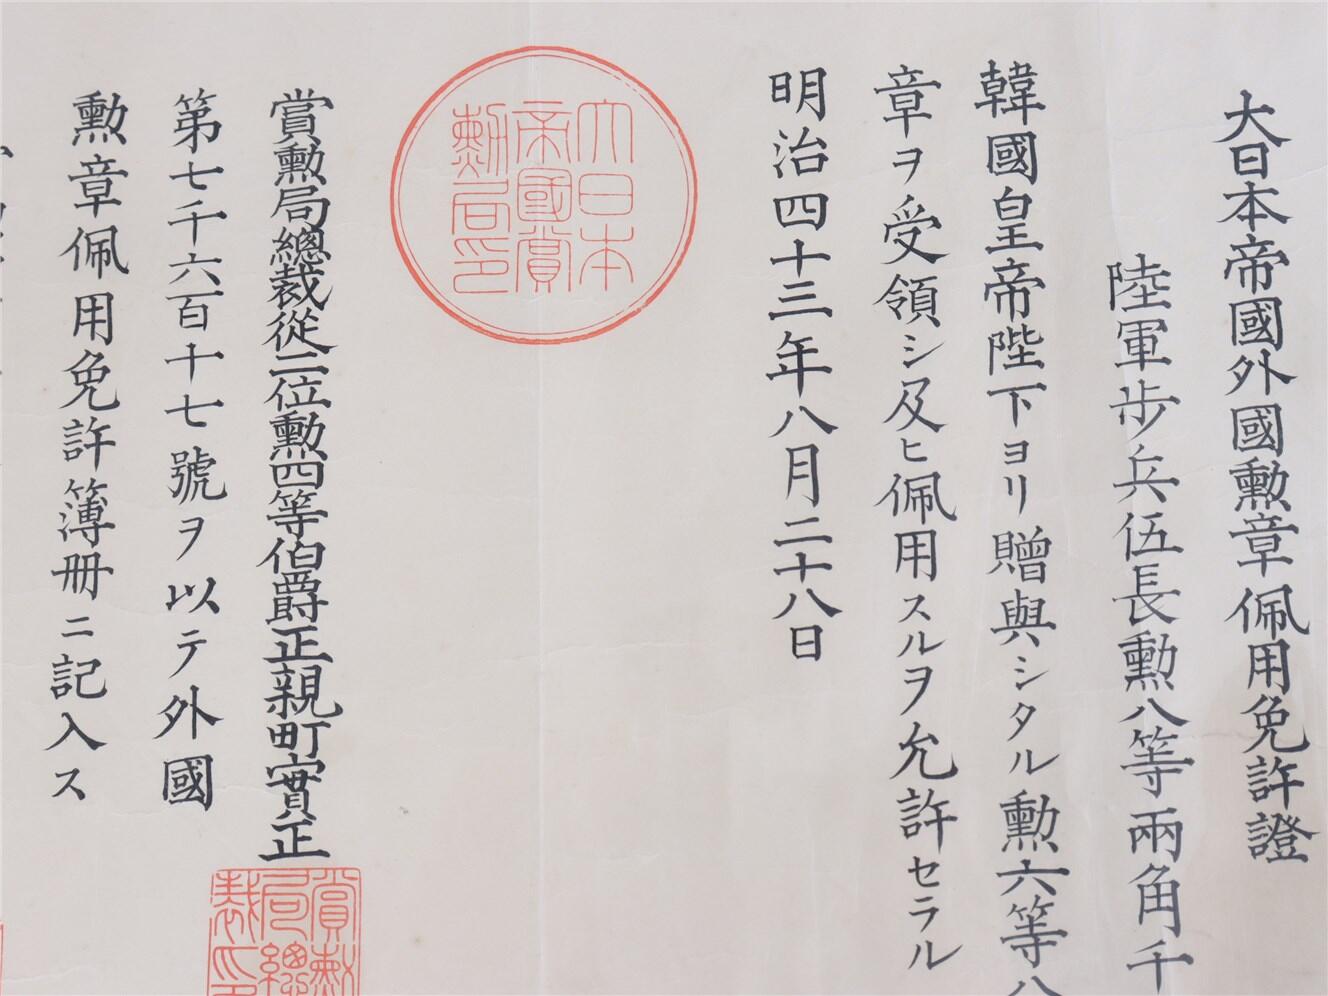 大日本帝國外國勳章佩用免許證
陸軍歩兵伍長勳八等兩角千
韓國皇帝陛下ヨリ贈與シタル勳六等八
章ヲ受領シ及ヒ佩用スルヲ允許セラル
明治四十三年八月二十八日
大日本
帝國賞
勳局印
賞勳局總裁從二位勳四等伯爵正親町實正
賞勳
局總
裁印
第七千六百十七號ヲ以テ外國
勳章佩用免許簿冊ニ記入ス